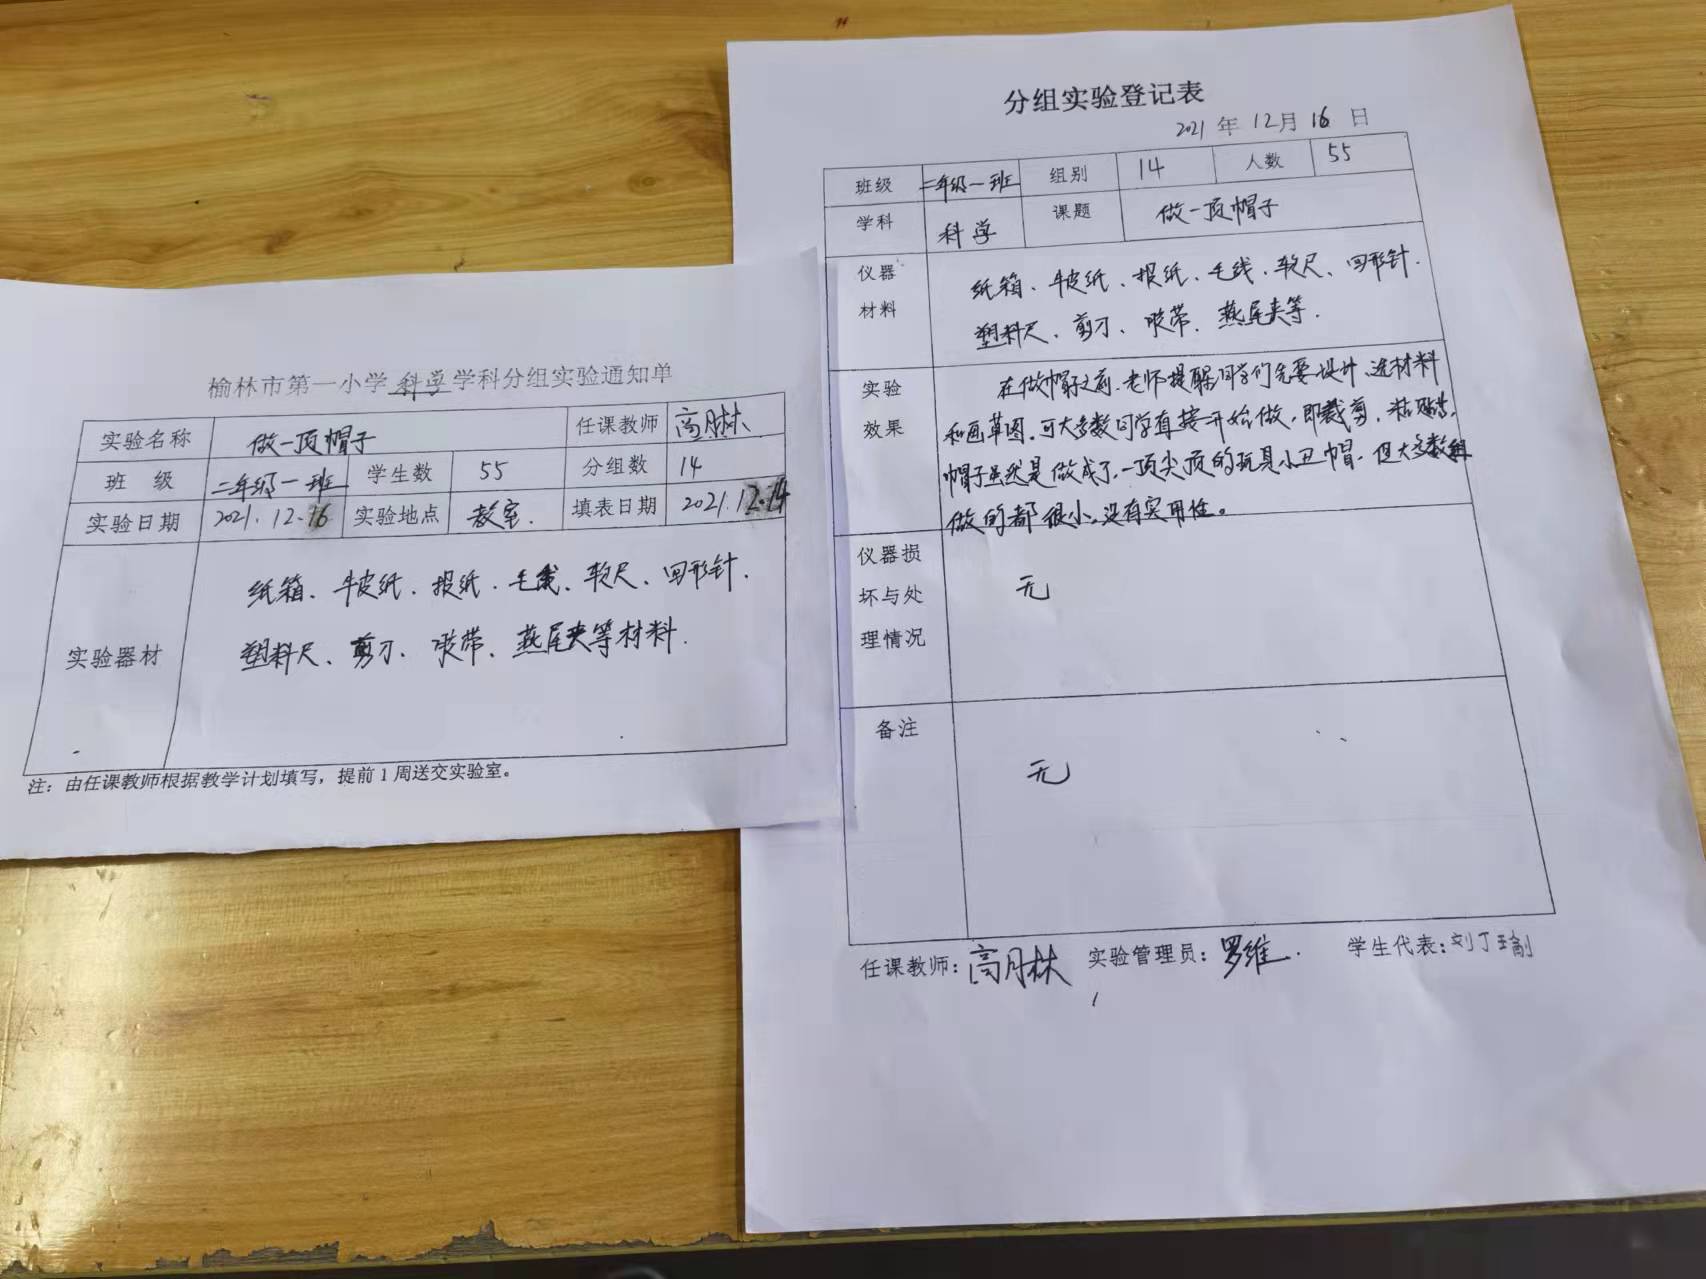 榆林市第一小学科学学科分组实验通知单
实验名称 做一顶帽子 任课教师 高月林
班 级 二年级一班 学生数 55 分组数 14
实验日期 2021.12.16 实验地点 教室. 填表日期 2021.12.14
实验器材
纸箱、牛皮纸、报纸、毛线、软尺、回形针、
塑料尺、剪刀、胶带、燕尾夹等材料.
注：由任课教师根据教学计划填写，提前1周送交实验室。
分组实验登记表
2021 年 12月 16 日
班级 二年级一班 组别 14 人数 55
学科 科学 课题 做一顶帽子
仪器
材料
纸箱、牛皮纸、报纸、毛线、软尺、回形针.
塑料尺、剪刀、胶带、燕尾夹等.
实验
效果
在做帽子之前.老师提醒同学们先要设计、选材料
和画草图.可大多数同学直接开始做，即裁剪，粘贴.
帽子虽然是做成了.一顶尖顶的玩具小丑帽.但大多数组
做的都很小。没有实用性。
仪器损
坏与处
理情况
无
备注
无
任课教师：高月林 实验管理员：罗维. 学生代表：刘丁瑜